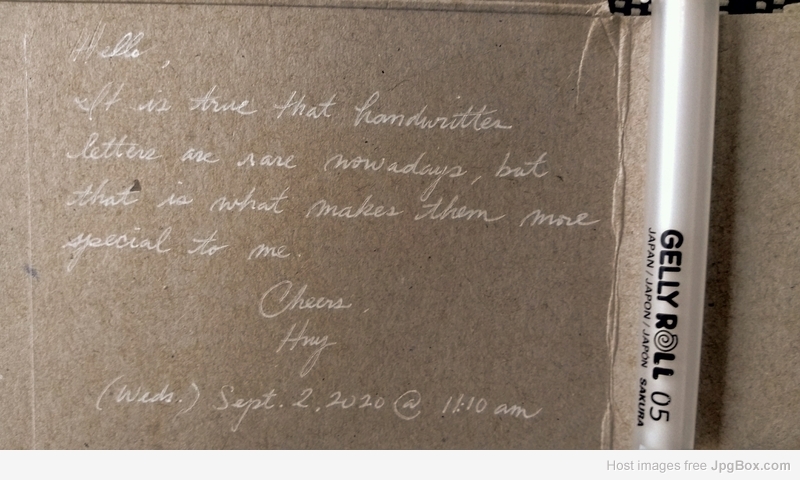 Hello,
It is true that handwritten
letters are rare nowadays, but
that is what makes them more
special to me.
Cheers,
Huy
(Weds.) Sept. 2, 2020 @ 11:10 am
GELLY ROLL 05
JAPAN / JAPON / JAPON SAKURA
Host images free JpgBox.com